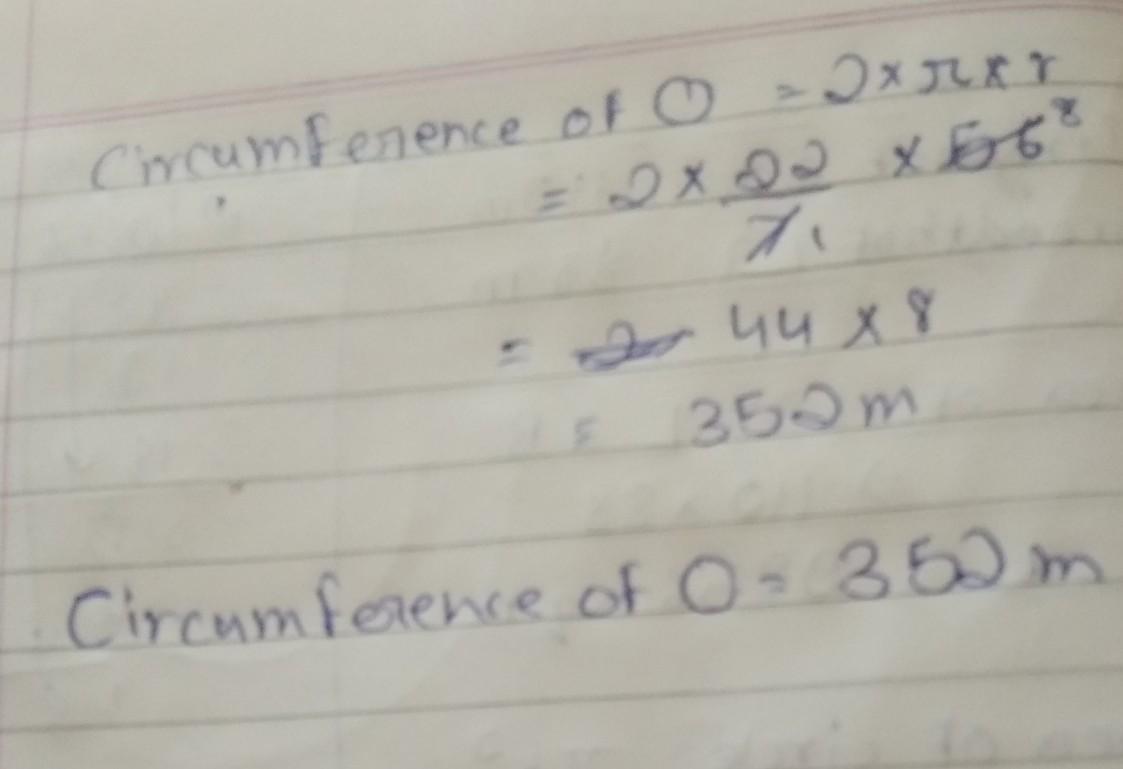 Circumference of O = 2×π×r
= 2×22/7 1 ×56 8
= 2 44×8
= 352m
Circumference of O = 352m